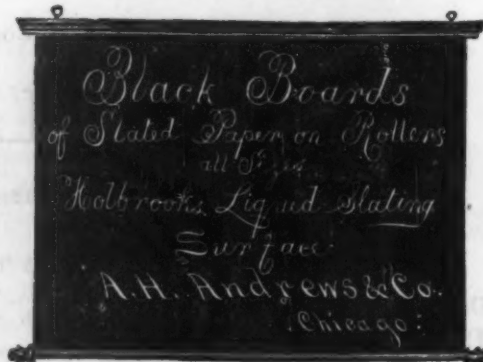 Black Boards
of Slated Paper on Rollers
all
Holbrooks Liquid Slating
Surface
A.H. Andrews & Co.
Chicago: